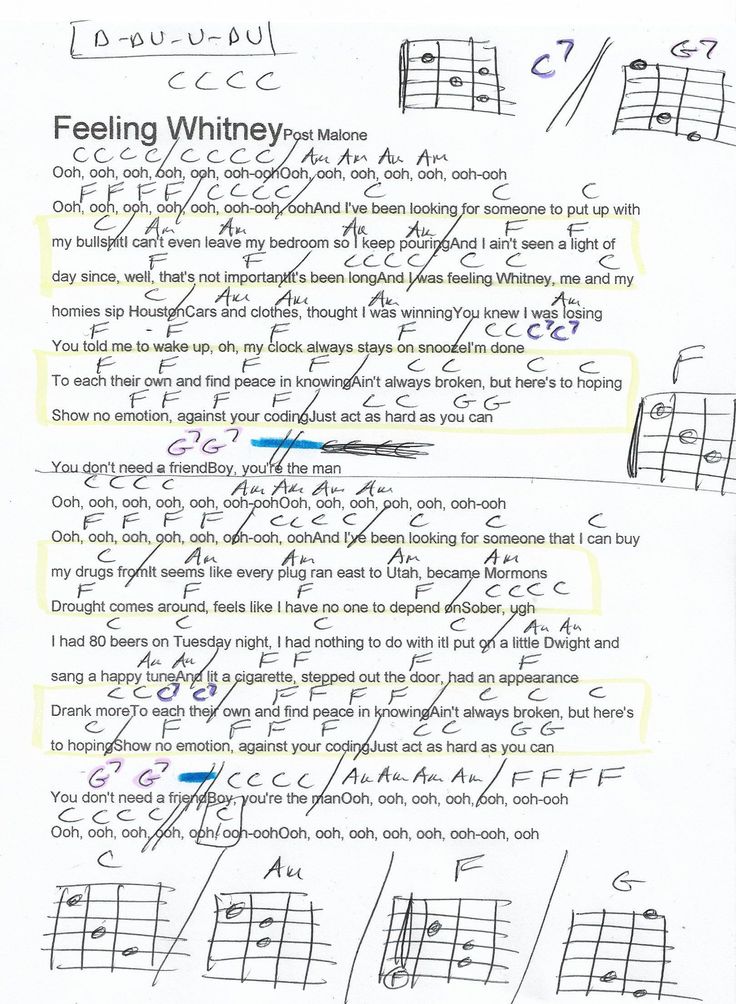 [D-DU-U-DU]
C C C C
C7 G7
Feeling Whitney Post Malone
C C C C / C C C C / Am Am Am Am
Ooh, ooh, ooh, ooh, ooh, ooh-oohOoh, ooh, ooh, ooh, ooh, ooh-ooh
F F F F / C C C C / C C C
Ooh, ooh, ooh, ooh, ooh, ooh-ooh, oohAnd I've been looking for someone to put up with
C / Am Am Am Am / F F
my bullshitI can't even leave my bedroom so I keep pouringAnd I ain't seen a light of
F F / C C C C / C C C
day since, well, that's not importantIt's been longAnd I was feeling Whitney, me and my
C / Am Am Am Am
homies sip HoustonCars and clothes, thought I was winningYou knew I was losing
F - F F F / C C C7 C7
You told me to wake up, oh, my clock always stays on snoozeI'm done
F F F F / C C C C
To each their own and find peace in knowingAin't always broken, but here's to hoping
F F F F / C C G G
Show no emotion, against your codingJust act as hard as you can
F
G7 G7
You don't need a friendBoy, you're the man
C C C C / Am Am Am Am
Ooh, ooh, ooh, ooh, ooh, ooh-oohOoh, ooh, ooh, ooh, ooh, ooh-ooh
F F F F / C C C C / C C C
Ooh, ooh, ooh, ooh, ooh, ooh-ooh, oohAnd I've been looking for someone that I can buy
C / Am Am Am Am
my drugs fromIt seems like every plug ran east to Utah, became Mormons
F F F F / C C C C
Drought comes around, feels like I have no one to depend onSober, ugh
C C C C / Am Am
I had 80 beers on Tuesday night, I had nothing to do with itI put on a little Dwight and
Am Am / F F F F
sang a happy tuneAnd lit a cigarette, stepped out the door, had an appearance
C C C7 C7 / F F F F / C C C
Drank moreTo each their own and find peace in knowingAin't always broken, but here's
C / F F F F / C C G G
to hopingShow no emotion, against your codingJust act as hard as you can
G7 G7 // C C C C / Am Am Am Am / F F F F
You don't need a friendBoy, you're the manOoh, ooh, ooh, ooh, ooh, ooh-ooh
C C C C / C
Ooh, ooh, ooh, ooh, ooh, ooh-oohOoh, ooh, ooh, ooh, ooh, ooh-ooh, ooh
C / Am / F / G
F